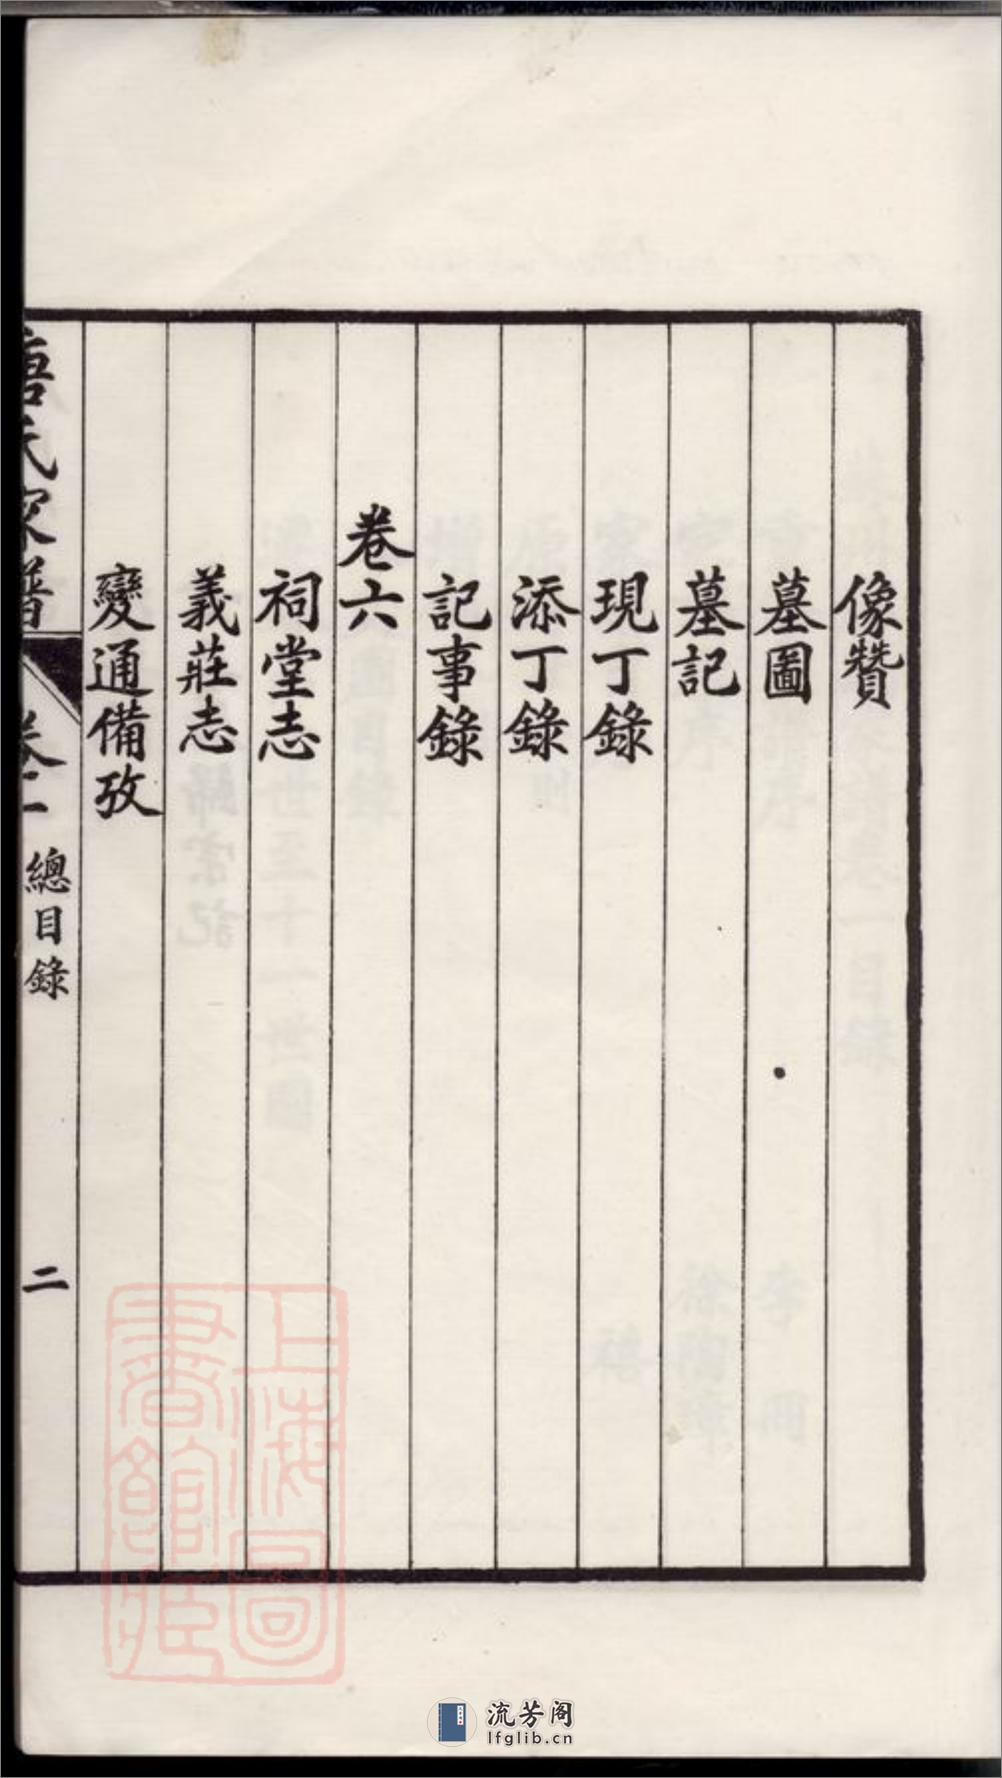 像贊
墓圖
墓記
現丁錄
添丁錄
記事錄
卷六
祠堂志
義莊志
變通備攷
唐氏家譜
總目錄
二
上海圖
書館藏
流芳阁
lfglib.cn